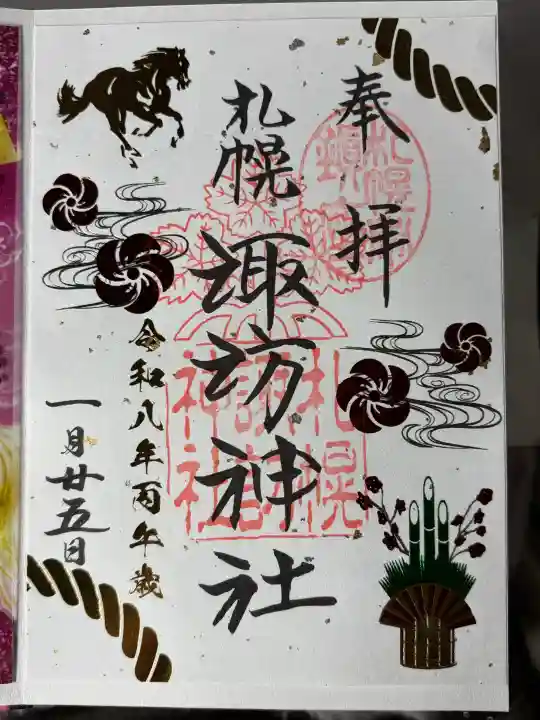 奉拝
札幌
諏訪神社
札幌
諏訪
神社
令和八年丙午歳
一月廿五日